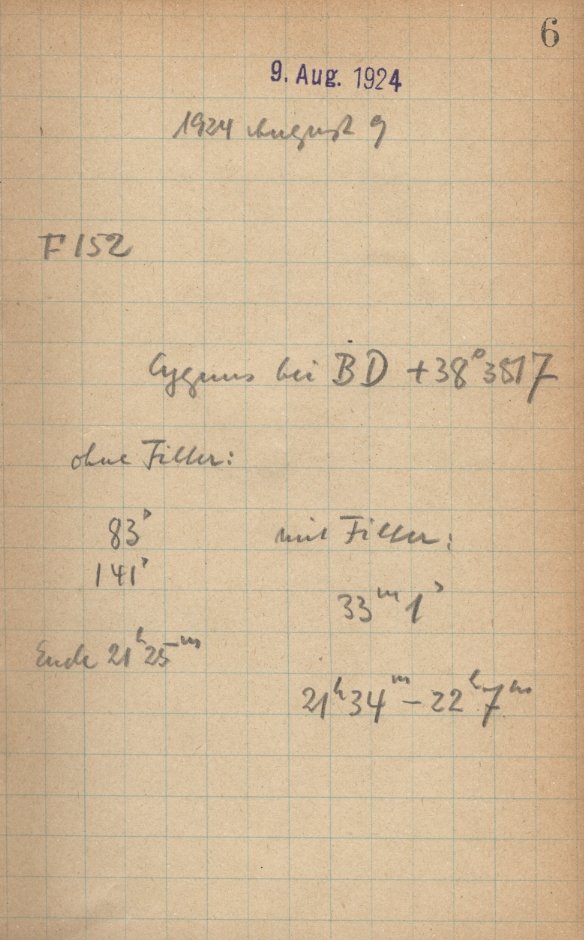 6
9. Aug. 1924
1924 August 9
F 152
Cygnus bei BD +38° 3817
ohne Filter:
83ˢ
141ˢ
Ende 21ʰ 25ᵐ
mit Filter:
33ᵐ 1ˢ
21ʰ 34ᵐ – 22ʰ 7ᵐ